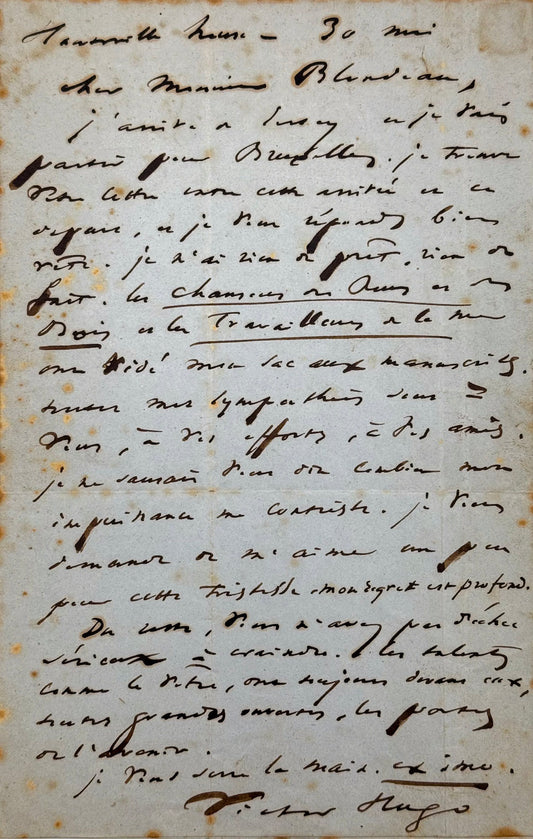 hauteville house – 30 mai
cher Monsieur Blondeau,
j'arrive de Jersey et je vais
partir pour Bruxelles. je trouve
votre lettre entre cette arrivée et ce
départ, et je vous réponds bien
vite. je n'ai rien de prêt, rien de
fait. les chansons des Rues et des
Bois et les Travailleurs de la mer
ont vidé mon sac aux manuscrits.
toutes mes sympathies sont à
vous, à vos efforts, à vos amis.
je ne saurais vous dire combien mon
impuissance me contriste. je vous
demande de m'aimer un peu
pour cette tristesse. mon regret est profond.
Du reste, vous n'avez pas d'échec
sérieux à craindre. les talents
comme le vôtre, ont toujours devant eux,
toutes grandes ouvertes, les portes
de l'avenir.
je vous serre la main. ex imo.
Victor Hugo